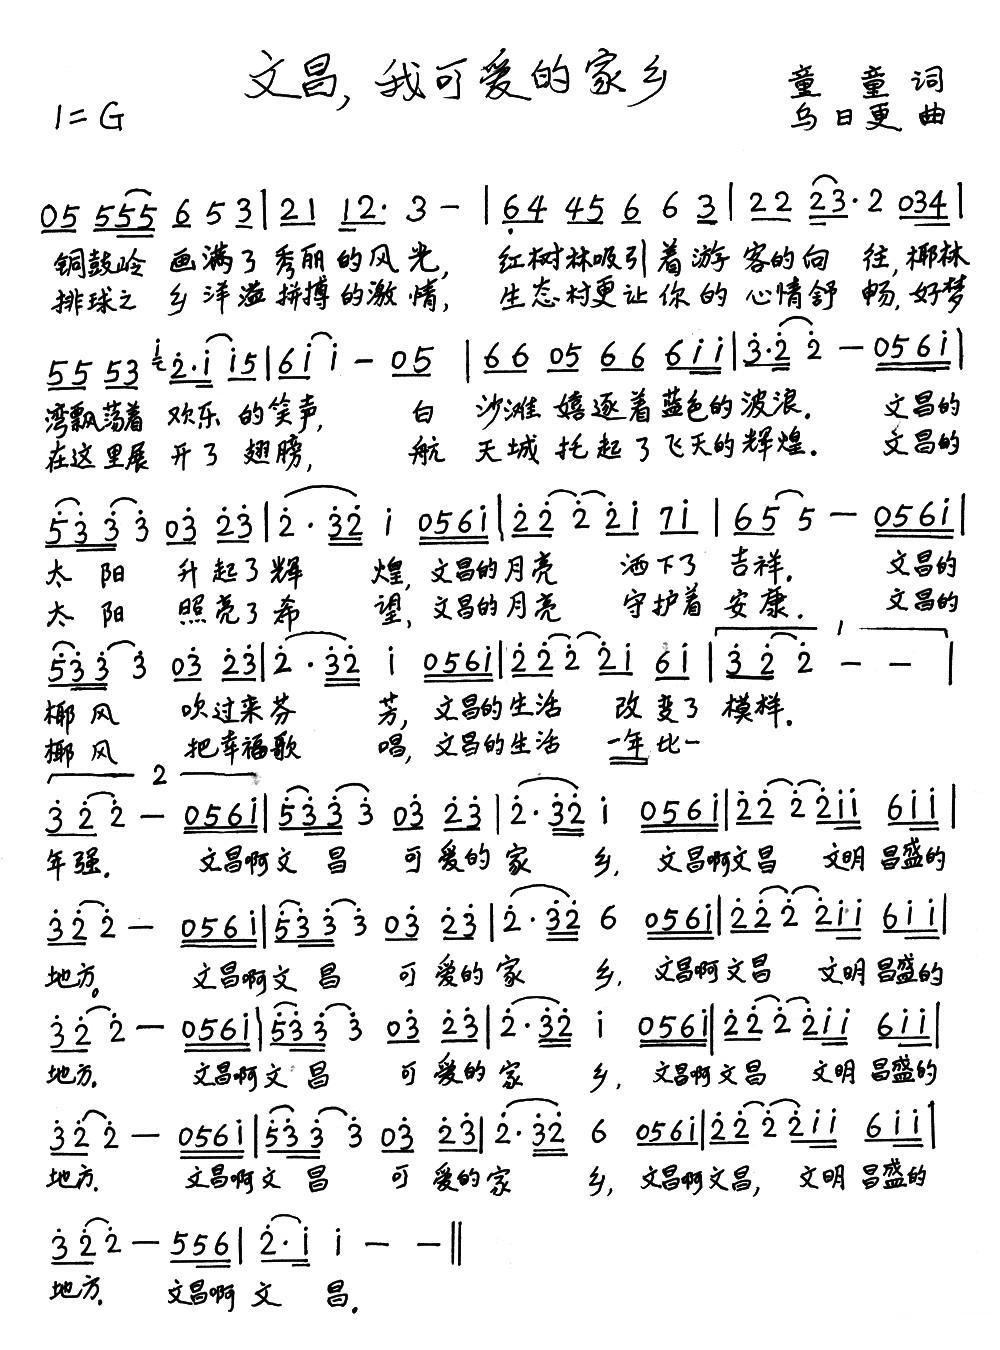 文昌,我可爱的家乡
童 童 词
1=G
乌日更 曲
05 555 6 5 3 | 21 12· 3 — | 64 45 6 6 3 | 22 23·2 034 |
铜鼓岭 画满了秀丽的风光, 红树林吸引着游客的向 往,椰林
排球之 乡洋溢拼搏的激情, 生态村更让你的心情舒 畅,好梦
55 53 2·i i5 | 6i i — 05 | 66 05 66 6ii | 3·2 2 — 056i |
湾飘荡着 欢乐 的笑声, 白 沙滩 嬉逐着蓝色的波浪. 文昌的
在这里展 开了 翅膀, 航 天城 托起了飞天的辉煌. 文昌的
533 3 03 23 | 2·32 i 056i | 22 2 2i 7i | 65 5 — 056i |
太 阳 升起了辉 煌,文昌的月亮 洒下了 吉祥. 文昌的
太 阳 照亮了希 望,文昌的月亮 守护着 安康. 文昌的
1
533 3 03 23 | 2·32 i 056i | 222 2i 6i | 32 2 — — |
椰风 吹过来芬 芳,文昌的生活 改变了 模样.
椰风 把幸福歌 唱,文昌的生活 一年比一
2
32 2 — 056i | 533 3 03 23 | 2·32 i 056i | 22 22ii 6ii |
年强. 文昌啊文 昌 可爱的家 乡, 文昌啊文昌 文明昌盛的
32 2 — 056i | 533 3 03 23 | 2·32 6 056i | 22 22ii 6ii |
地方。 文昌啊文 昌 可爱的家 乡, 文昌啊文昌 文明昌盛的
32 2 — 056i | 533 3 03 23 | 2·32 i 056i | 22 22ii 6ii |
地方. 文昌啊文 昌 可爱的家 乡, 文昌啊文昌 文明昌盛的
32 2 — 056i | 533 3 03 23 | 2·32 6 056i | 22 22ii 6ii |
地方. 文昌啊文 昌 可爱的家 乡, 文昌啊文昌, 文明昌盛的
32 2 — 556 | 2·i i — — ‖
地方. 文昌啊 文 昌.